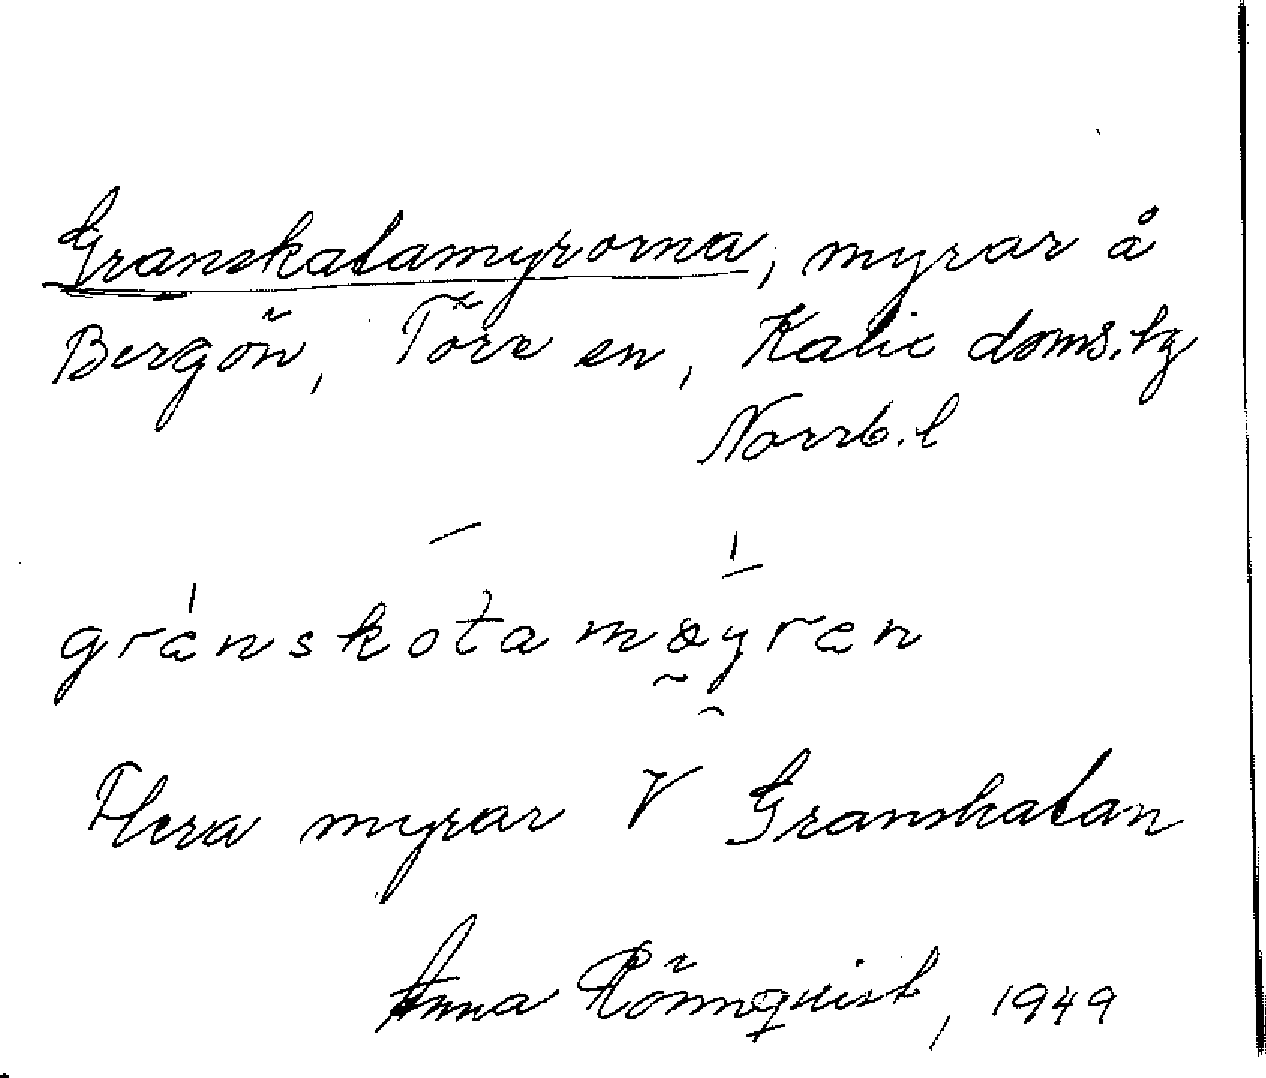 Granskatamyrorna, myrar å
Bergön, Töre sn, Kalix doms. tg
Norrb. l
Flera myrar V Granskatan
Anna Rönnquist, 1949